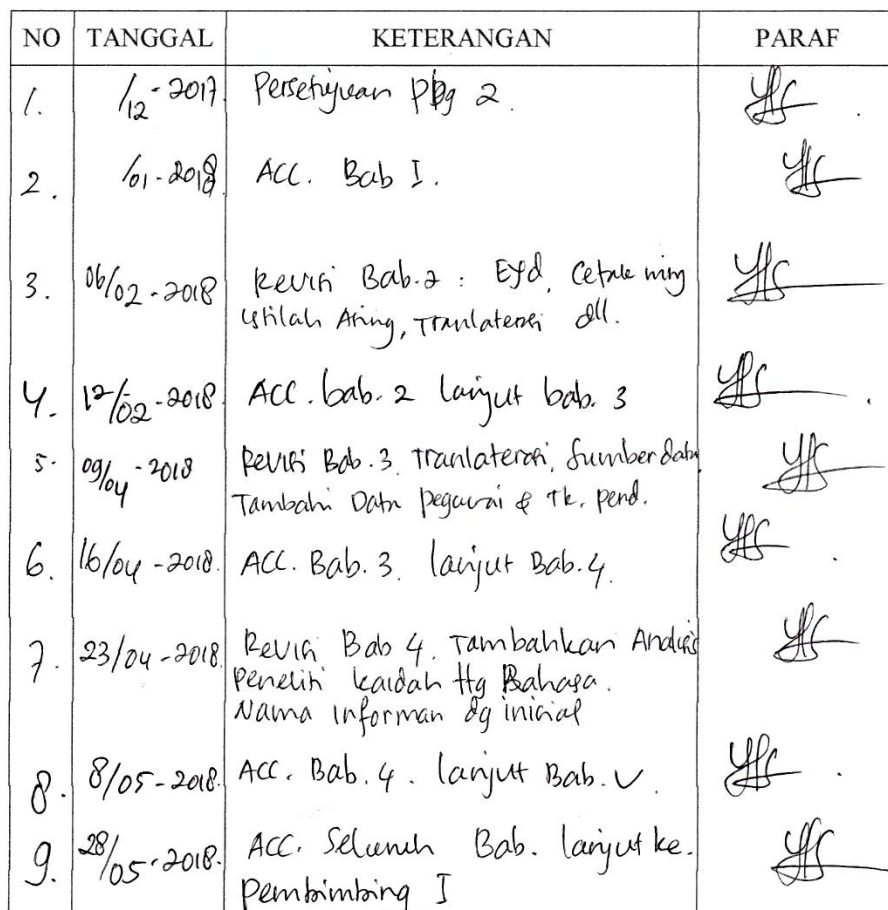 NO TANGGAL KETERANGAN PARAF
1. /12-2017 Persetujuan Pbg 2.
2. /01-2018 ACC. Bab I.
3. 06/02-2018 Revisi Bab.2 : Eyd, Cetak miring
istilah Asing, Tranlaterasi dll.
4. 12/02-2018 ACC. bab. 2 lanjut bab. 3
5. 09/04-2018 Revisi Bab.3 Tranlaterasi, Sumber data
Tambahi Data pegawai & Tk. pend.
6. 16/04-2018. ACC. Bab. 3. lanjut Bab.4.
7. 23/04-2018. Revisi Bab 4. Tambahkan Analisis
Peneliti kaidah ttg Bahasa.
Nama informan dg inisial
8. 8/05-2018. ACC. Bab. 4. lanjut Bab. V.
9. 28/05-2018. ACC. Seluruh Bab. lanjut ke.
Pembimbing I